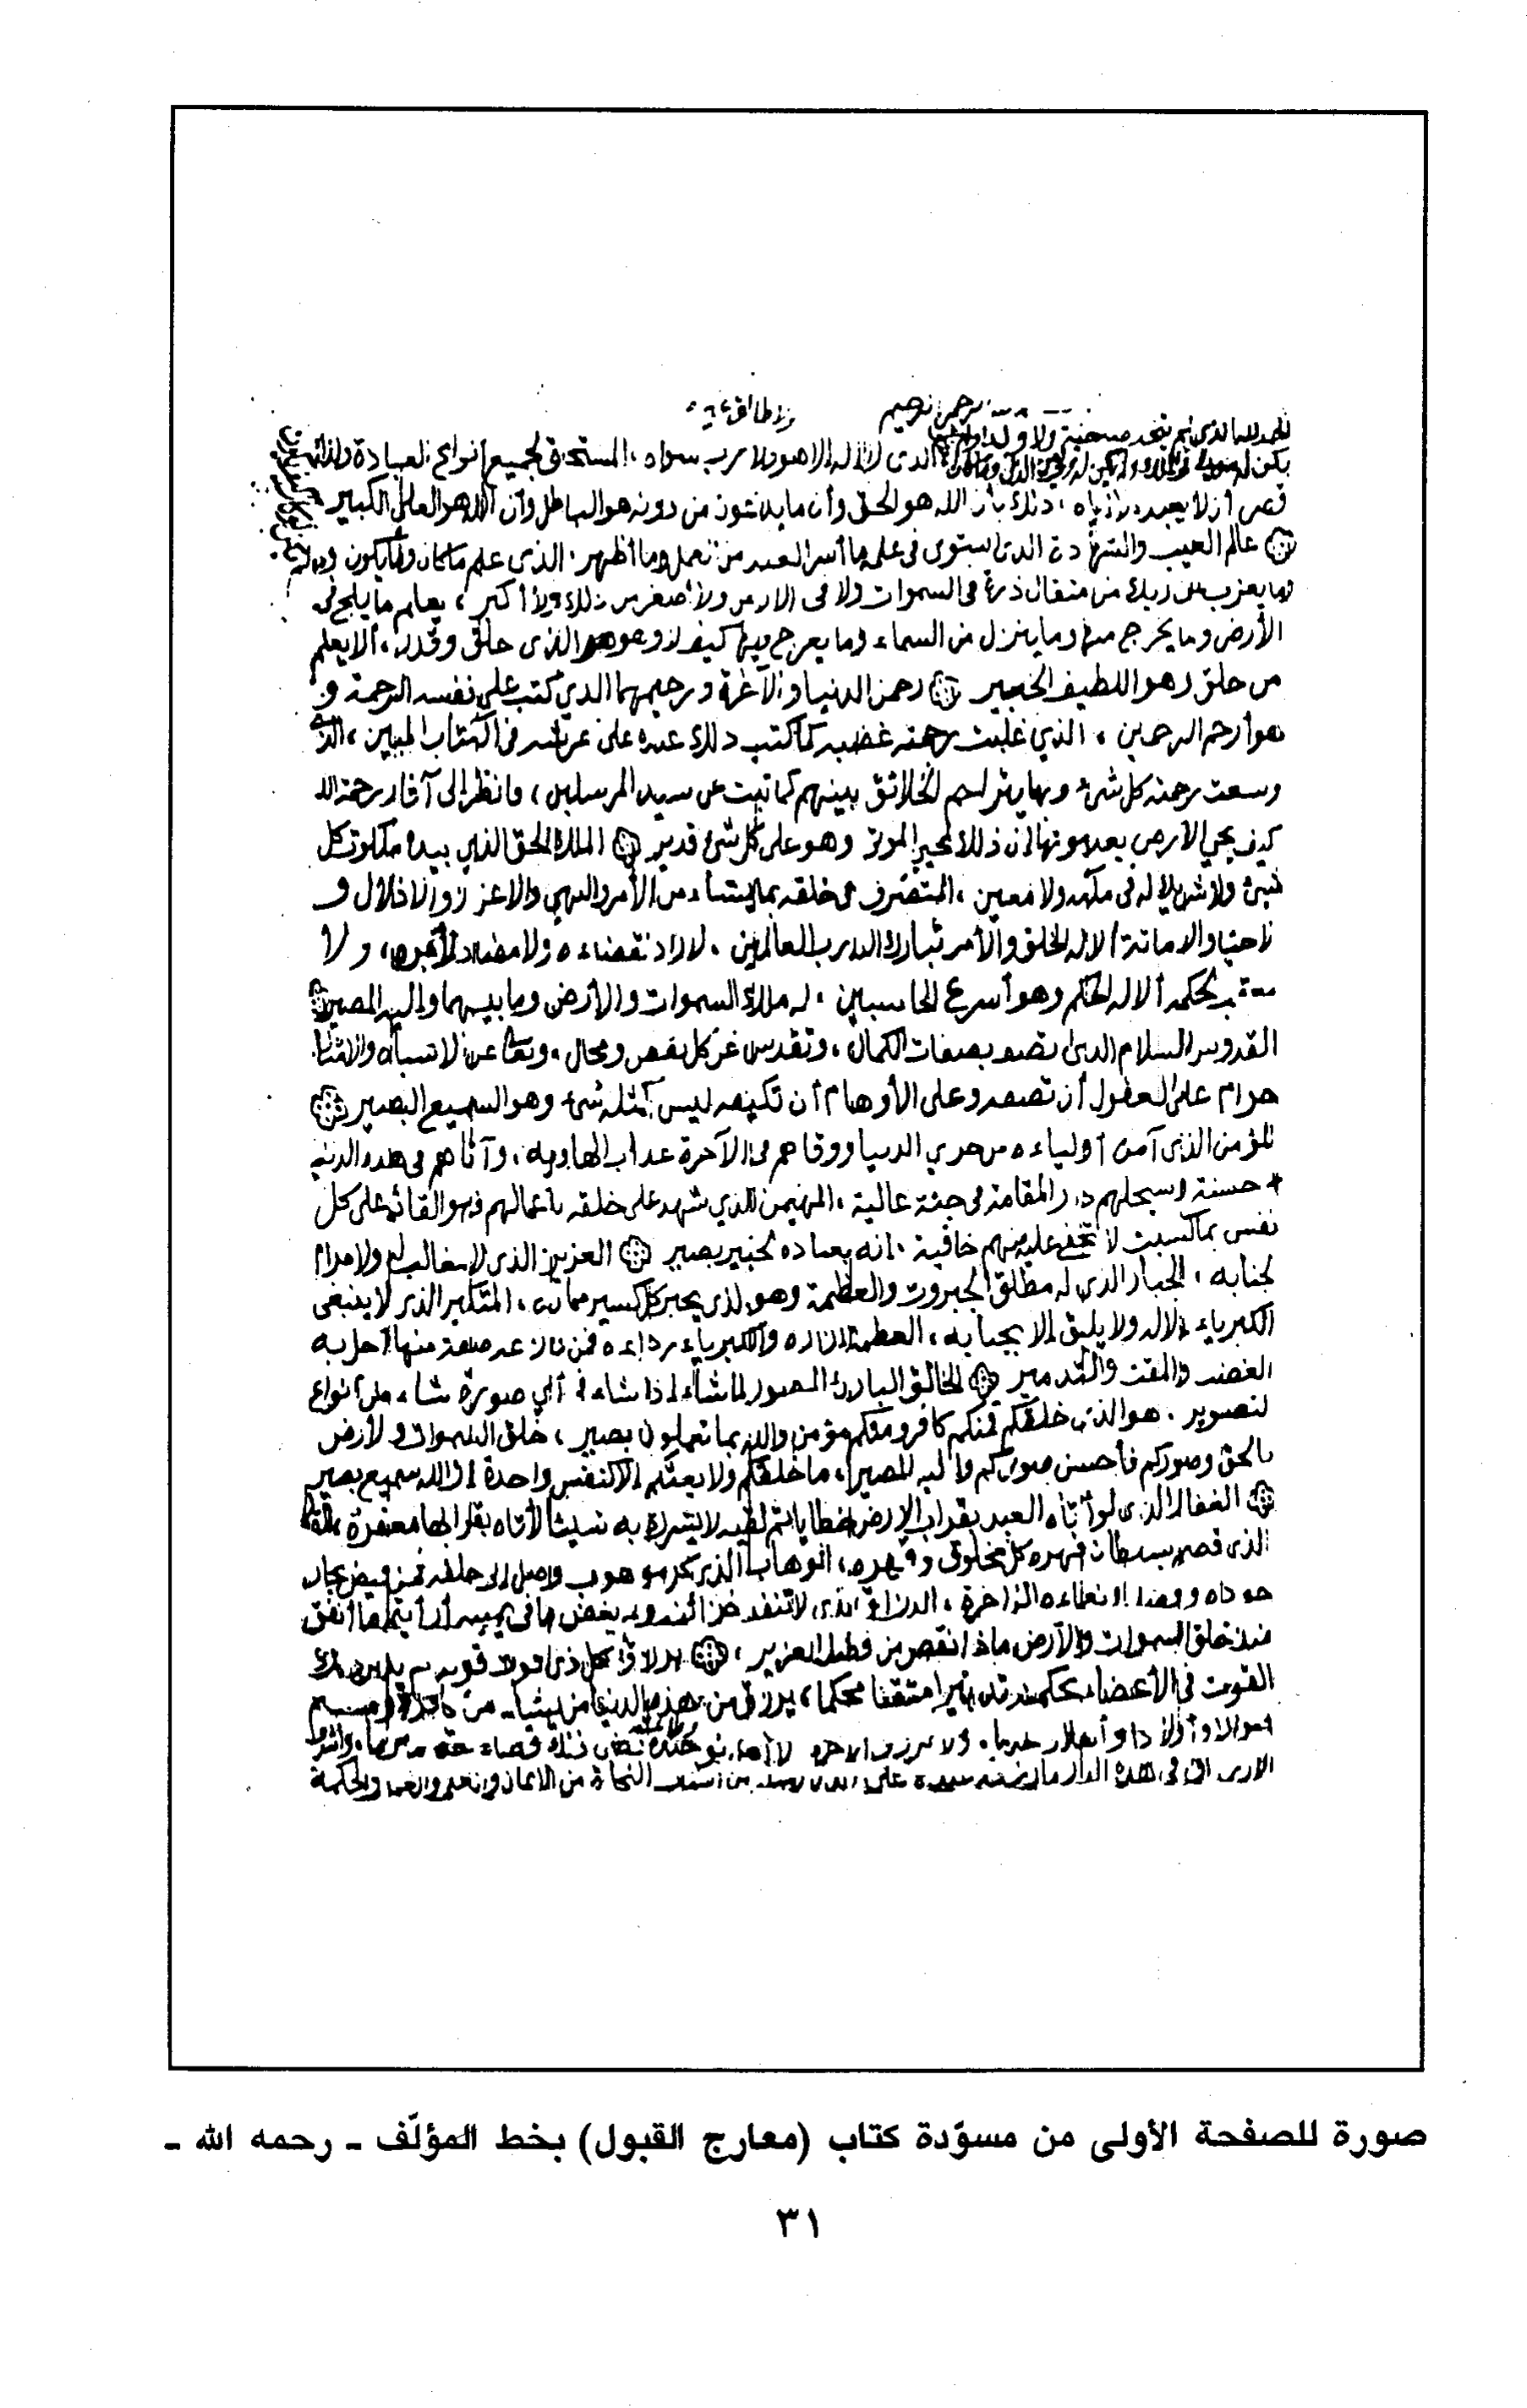 الرحمن الرحيم
الحمد لله الذي لم يتخذ صاحبة ولا ولدا
يكن له الذي لا إله إلا هو ولا رب سواه، المستحق لجميع أنواع العبادة ولذا
قضى أن لا يعبد إلا إياه، ذلك بأن الله هو الحق وأن ما يدعون من دونه هو الباطل وأن الله هو العلي الكبير
عالم الغيب والشهادة الذي استوى في علمه ما أسر العبد من العمل وما أظهر، الذي علم ما كان وما يكون
وما يعزب عن ربك من مثقال ذرة في السموات ولا في الارض ولا أصغر من ذلك ولا أكبر، يعلم ما يلج في
الأرض وما يخرج منها وما ينزل من السماء وما يعرج فيها كيف لا وهو الذي خلق وقدر، ألا يعلم
من خلق وهو اللطيف الخبير رحمن الدنيا والآخرة ورحيمهما الذي كتب على نفسه الرحمة و
هو أرحم الراحمين، الذي غلبت رحمته غضبه كما كتب ذلك عنده على عرشه في الكتاب المبين، الذي
وسعت رحمته كل شيء وبها يتراحم الخلائق بينهم كما ثبت عن سيد المرسلين، فانظر إلى آثار رحمة الله
كيف يحيي الارض بعد موتها إن ذلك لمحيي الموتى وهو على كل شيء قدير الملك الحق الذي بيده ملكوت كل
شيء ولا شريك له في ملكه ولا معين، المتصرف في خلقه بما يشاء من الأمر والنهي والاعزاز والاذلال و
الاحياء والاماتة ألا له الخلق والأمر تبارك الله رب العالمين، لا راد لقضاءه ولا مضاد لأمره، ولا
معقب لحكمه ألا له الحكم وهو أسرع الحاسبين، له ملك السموات والأرض وما بينهما وإليه المصير
القدوس السلام الذي اتصف بصفات الكمال، وتقدس عن كل نقص ومحال، وتعالى عن الاشباه والامثال
حرام على العقول أن تصفه وعلى الأوهام أن تكيفه ليس كمثله شيء وهو السميع البصير
المؤمن الذي آمن أولياءه من خزي الدنيا ووقاهم في الآخرة عذاب الهاوية، وآتاهم في هذه الدنيا
حسنة وسيحلهم دار المقامة في جنة عالية، المهيمن الذي شهد على خلقه بأعمالهم فهو القائم على كل
نفس بما كسبت لا تخفى عليه منهم خافية، إنه بعباده لخبير بصير العزيز الذي لا مغالب له ولا مرام
لجنابه، الجبار الذي له مطلق الجبروت والعظمة وهو الذي يجبر كل كسير مما به، المتكبر الذي لا ينبغي
الكبرياء إلا له ولا يليق إلا بجنابه، العظمة إزاره والكبرياء رداءه فمن نازعه صفة منها أحل به
الغضب والمقت والتدمير الخالق البارئ المصور لما شاء إذا شاء في أي صورة شاء من أنواع
التصوير، هو الذي خلقكم فمنكم كافر ومنكم مؤمن والله بما تعملون بصير، خلق السموات والأرض
بالحق وصوركم فأحسن صوركم وإليه المصير، ما خلقكم ولا بعثكم إلا كنفس واحدة إن الله سميع بصير
الغفار الذي لو أتاه العبد بقراب الارض خطايا ثم لقيه لا يشرك به شيئا لأتاه بقرابها مغفرة، القهار
الذي قصم بسلطان قهره كل مخلوق وقهره، الوهاب الذي كل موهوب وصل إلى خلقه فمن فيض بحار
جوده وفضله ونعماءه الزاخرة، الرزاق الذي لا تنفد خزائنه ولم يغض ما في يمينه أرأيتم ما أنفق
منذ خلق السموات والأرض ماذا نقص من فضله الغزير،
القوت في الأعضاء بحكمته تدبيرا متقنا محكما، يرزق من هذه الدنيا من يشاء من كافر ومسلم
أموالا وأولادا وأهلا وخدما، ولا يرزق الآخرة إلا
الارزاق في هذه الدار
صورة للصفحة الأولى من مسوّدة كتاب (معارج القبول) بخط المؤلّف ـ رحمه الله ـ
٣١